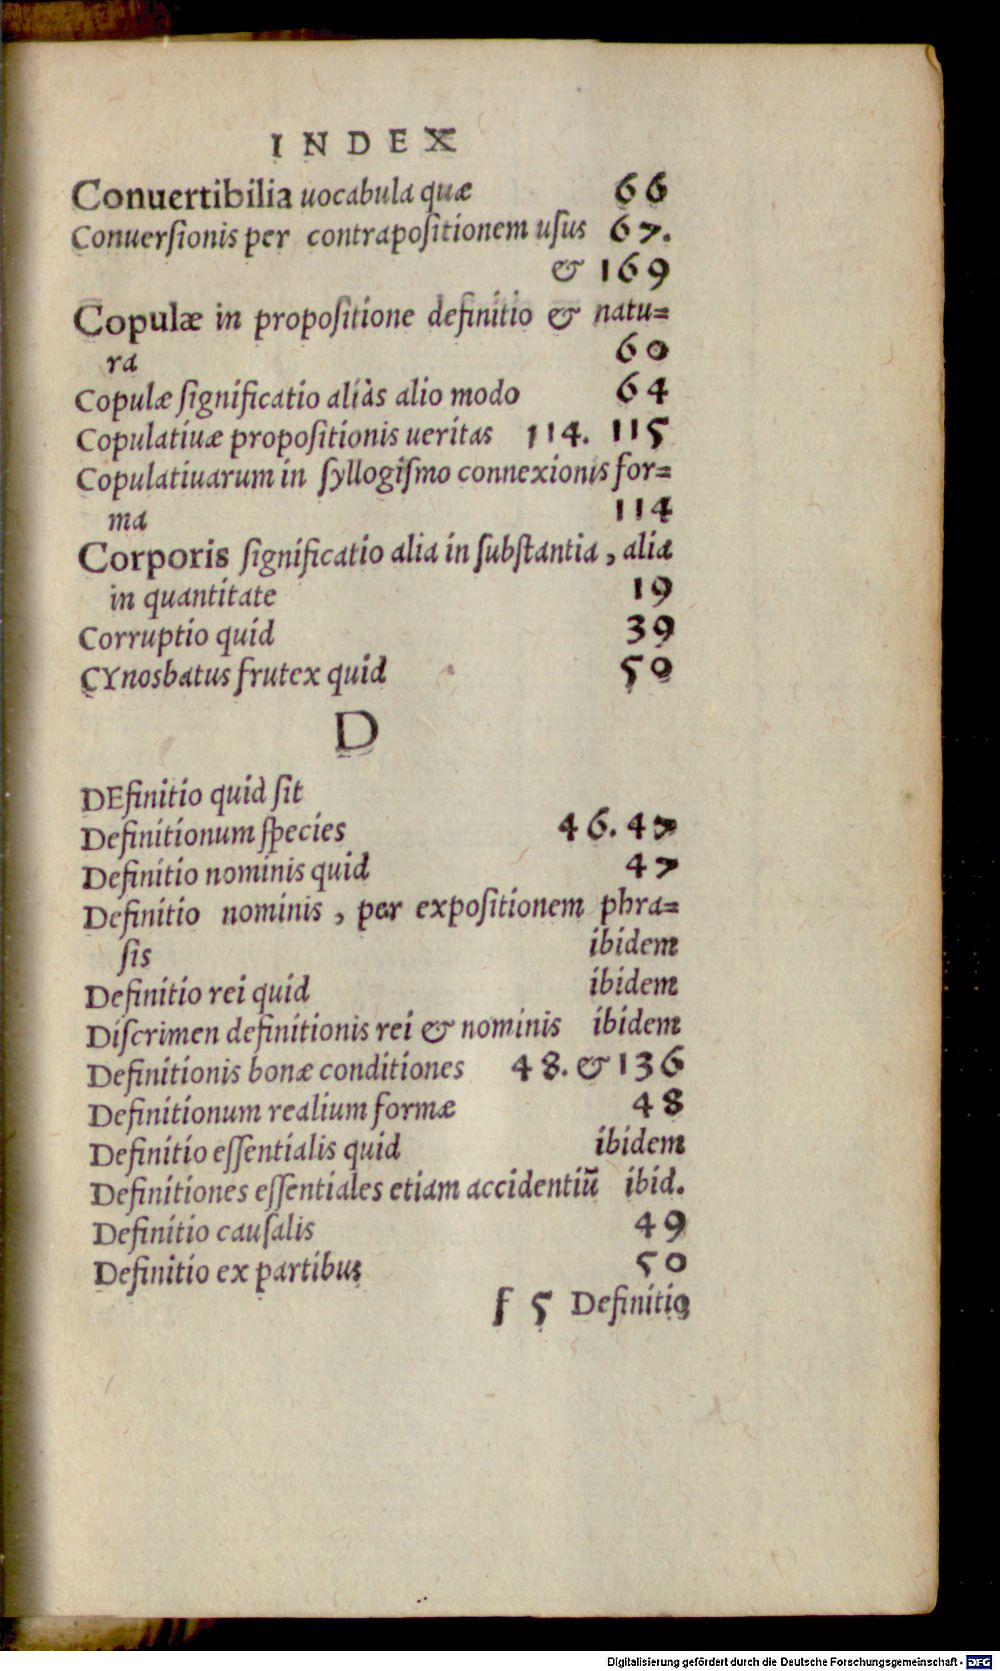 INDEX
Conuertibilia uocabula quæ 66
Conuerſionis per contrapoſitionem uſus 67.
& 169
Copulæ in propoſitione definitio & natu=
ra 60
Copulæ ſignificatio aliàs alio modo 64
Copulatiuæ propoſitionis ueritas 114. 115
Copulatiuarum in ſyllogiſmo connexionis for=
ma 114
Corporis ſignificatio alia in ſubſtantia, alia
in quantitate 19
Corruptio quid 39
CYnosbatus frutex quid 50
D
DEfinitio quid ſit
Definitionum ſpecies 46. 47
Definitio nominis quid 47
Definitio nominis, per expoſitionem phra=
ſis ibidem
Definitio rei quid ibidem
Diſcrimen definitionis rei & nominis ibidem
Definitionis bonæ conditiones 48. & 136
Definitionum realium formæ 48
Definitio eſſentialis quid ibidem
Definitiones eſſentiales etiam accidentiū ibid.
Definitio cauſalis 49
Definitio ex partibus 50
f 5 Definitio
Digitalisierung gefördert durch die Deutsche Forschungsgemeinschaft - DFG